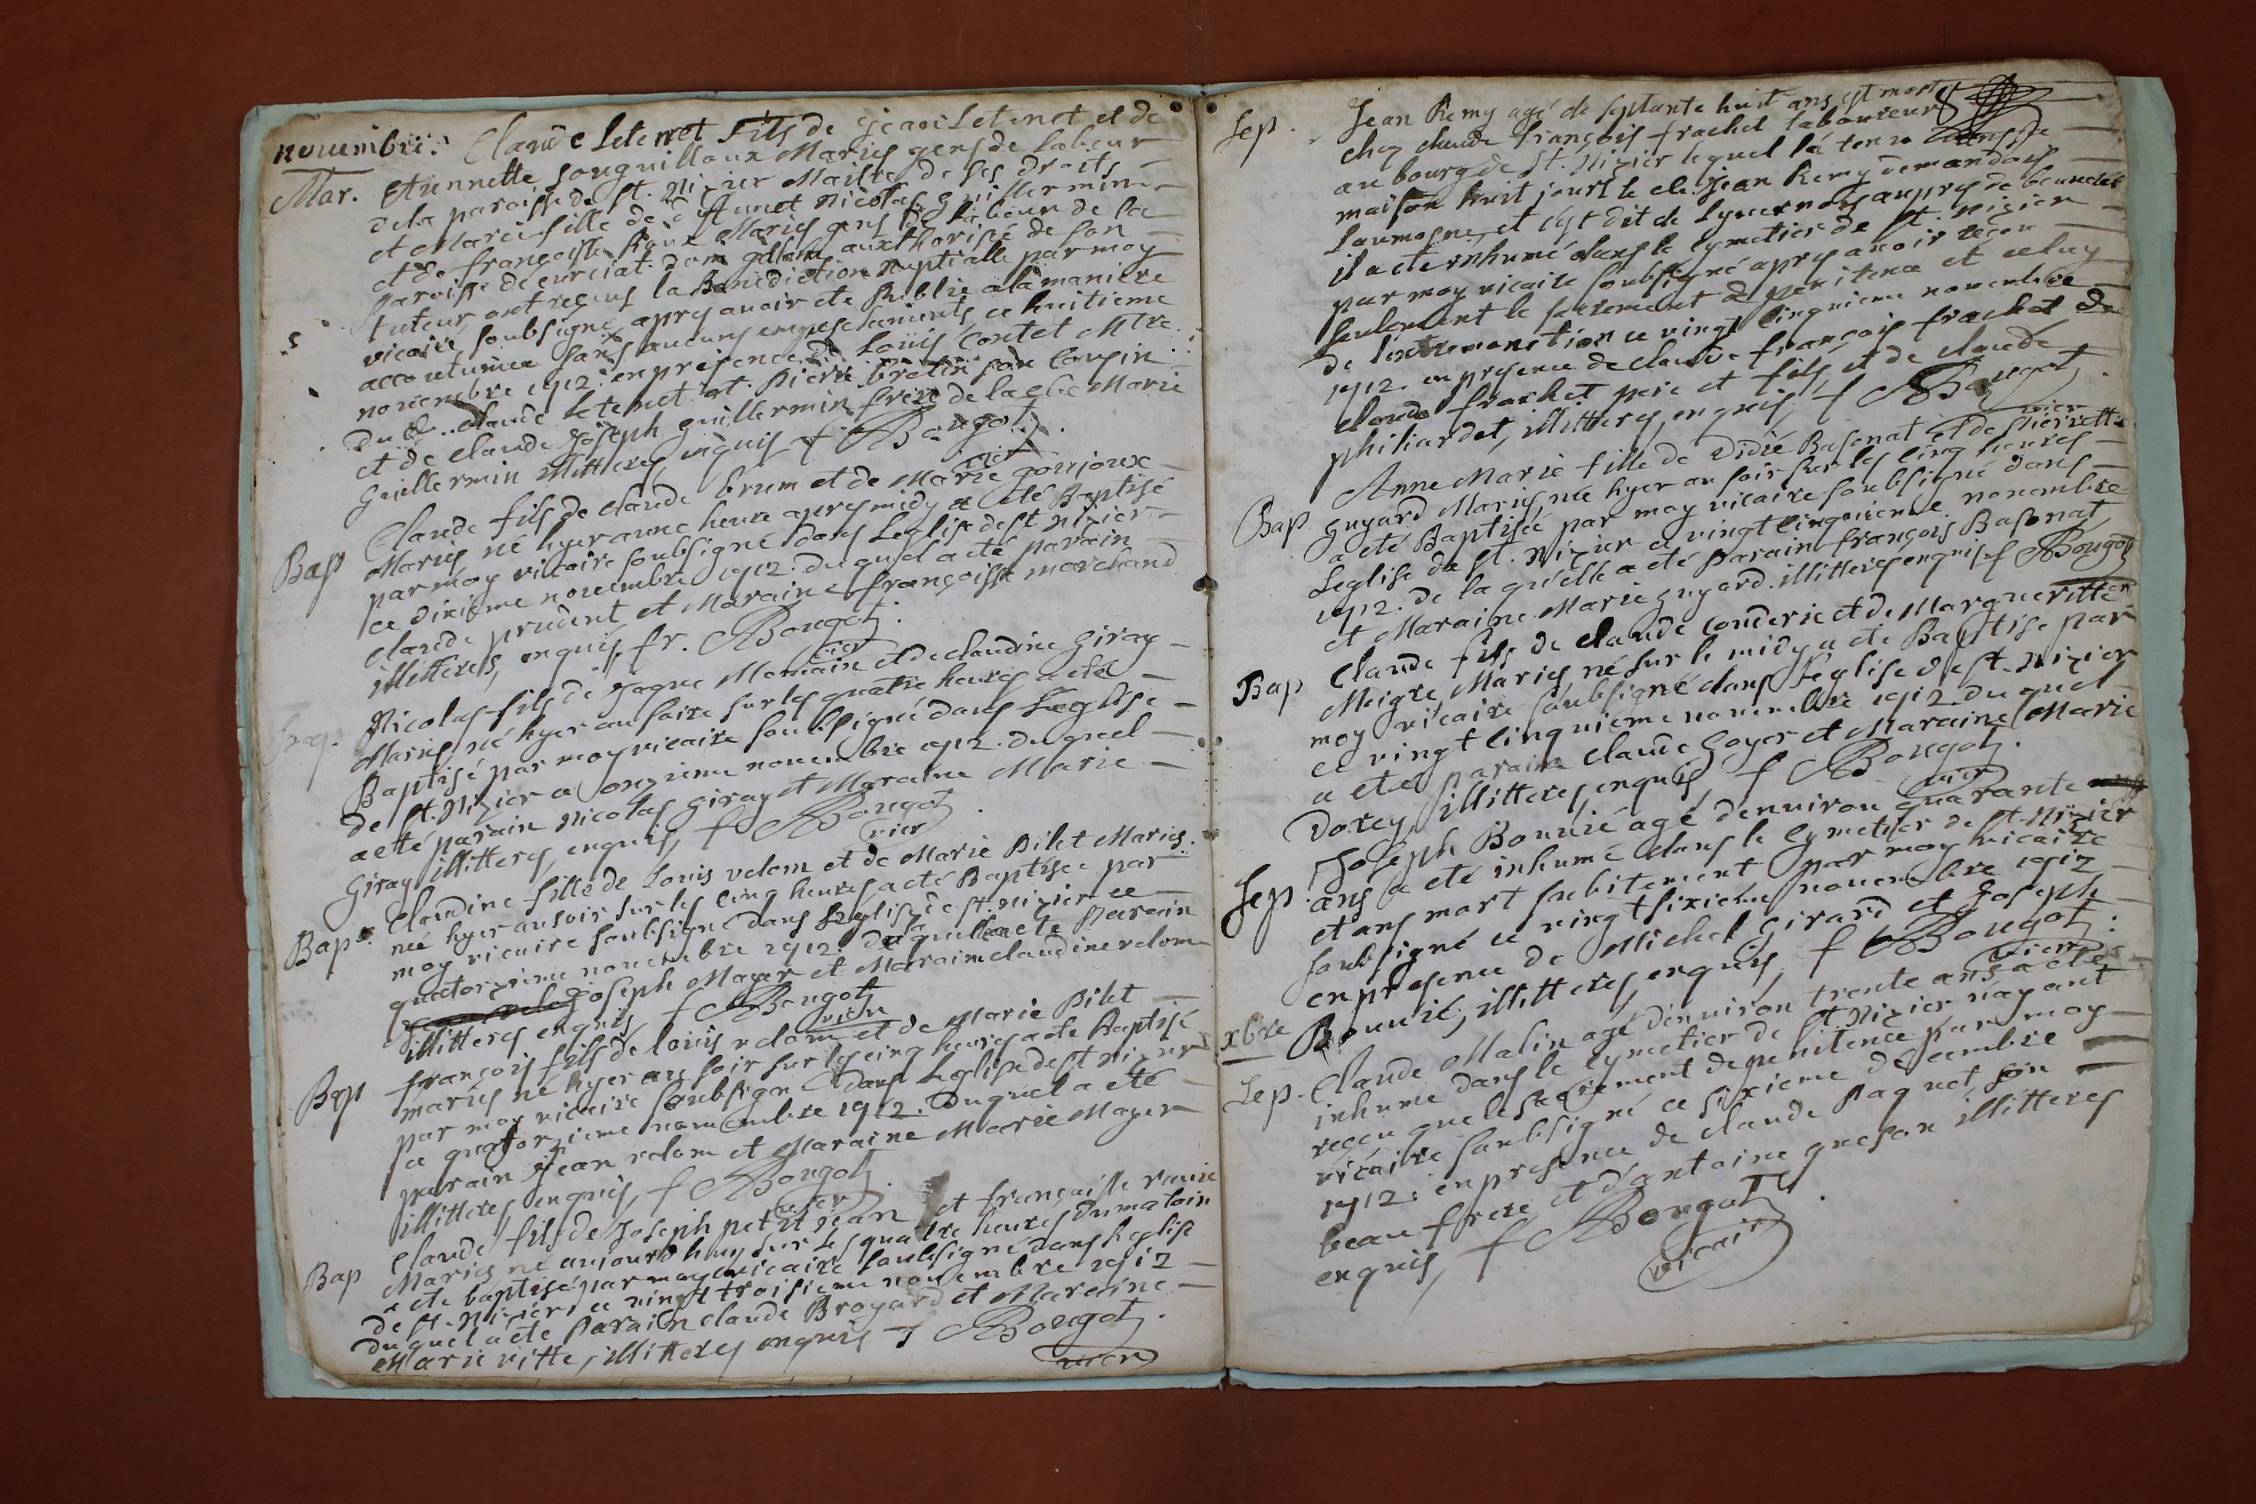 nouembre. Claude Letenet Fils de Jean Letenet et de
Mar. Etiennette Gouguilloux Mariés gens de labeur
de la paroisse de St. Nizier Maitre de ses droits
et Marie fille de d'funct Nicolas Guillermin
et de françoise Mariés gens de labeur de la
Paroisse de curciat. auxthorisée de son
tuteur ont reçeus la Benediction nuptialle par moy
vicaire soubsigné apres auoir ete Publie a la maniere
accoutumee sans aucuns empeschements ce huitieme
nouembre 1712. en presence de Louis Contet Mtre.
du d. claude Letenet et. pierre bretin son Cousin
et de claude Joseph guillermin frere de la de Marie
Guillermin illitteres enquis f Bougot
vicr
Claude fils de claude brum et de Marie goujoux
Bap Mariés né hyer a une heure apres midy a été Baptisé
par moy vicaire soubsigné dans L'eglise de st nizier
ce dixieme nouembre 1712. duquel a eté parain
claude prudent et Maraine françoise marchand
illitteres, enquis, fr. Bougot.
vicr
Bap. Nicolas fils de Jaque Memain et de claudine Giray
Mariés né hyer au soire sur les quatre heures a eté
Baptisé par moy vicaire soubsigné dans L'eglise
de st. Nizier ce onzieme nouembre 1712. duquel
a eté parain Nicolas Giray et Maraine Marie
Giray illitteres, enquis, f Bougot
vicr
Bap. Claudine fille de Louis velom et de Marie Pilet Mariés
née hyer au soir sur les cinq heures a eté Baptisée par
moy vicaire soubsigné dans L'eglise de st. nizier ce
quatorzieme nouembre 1712. de laquelle a ete Parain
Joseph Mayer et Maraine claudine velom
illitteres enquis f Bougot
vicr
Bap françois fils de louis velom et de Marie Pilet
mariés né hyer au soir sur les cinq heures a ete Baptisé
par moy vicaire soubsigné dans L'eglise de st nizier
ce quatorzieme nouembre 1712. Duquel a eté
parain Jean velom et Maraine Marie Mayer
illitteres, enquis, f Bougot
vicr
Claude fils de Joseph petit jean et françoise
Bap Mariés né aujourdhuy sur les quatre heures du matin
a ete baptisé par moy vicaire soubsigné dans L'eglise
de st. Nizier, ce vingt troisieme nouembre 1712
duquel a ete Parain claude Broyard et Maraine
Marie vitte, illitteres enquis f Bougot.
vicr
Sep. Jean Remy agé de septante huit ans est mort
chez claude françois frachet laboureur
au bourg de St. Nizier lequel l'a tenu dans sa
maison huit jours le d. Jean Remy demandoit
l'aumosne, et s'est dit de aupres de
il a ete inhumé dans le cymetier de st. nizier
par moy vicaire soubsigné apres auoir reçeu
seulement le sacrement de penitence et celuy
de l'extremonction ce vingt cinquieme nouembre
1712. en presence de claude françois frachet de
claude frachet pere et fils, et de claude
philiardet, illitteres, enquis, f Bougot.
vicr
Anne Marie fille de Didié Basonat et de Pierrette
Bap guyard Mariés née hyer au soir sur les cinq heures
a eté Baptisée par moy vicaire soubsigné dans
L'eglise de st. nizier ce vingt cinquieme nouembre
1712. de la qu'elle a eté Parain françois Basonat
et Maraine Marie guyard. illitteres enquis f Bougot
vicr
Bap Claude fils de claude conderie et de Margueritte
Maigre Mariés, né sur le midy a eté Baptisé par
moy vicaire soubsigné dans l'eglise de st. nizier
ce vingt cinquieme nouembre 1712. du quel
a eté parain claude Goyer et Maraine Marie
Dorey, illitteres, enquis, f Bougot.
vicr
Joseph Bouuié agé denuiron quarante
Sep. ans a eté inhumé dans le cymetier de st. Nizier
etans mort subitement par moy vicaire
soubsigné ce vingt sixieme nouembre 1712
en presence de Michel Girard et Joseph
Bouuié, illitteres, enquis, f Bougot.
vicr
xbre
Sep. Claude Malin agé denuiron trente ans a eté
inhumé dans le cymetier de st Nizier n'ayant
reçeu que le sacrement de penitence par moy
vicaire soubsigné ce sixieme decembre
1712. en presence de claude Paquet, son
beau frere et d'antoine illitteres
enquis, f Bougot.
vicair